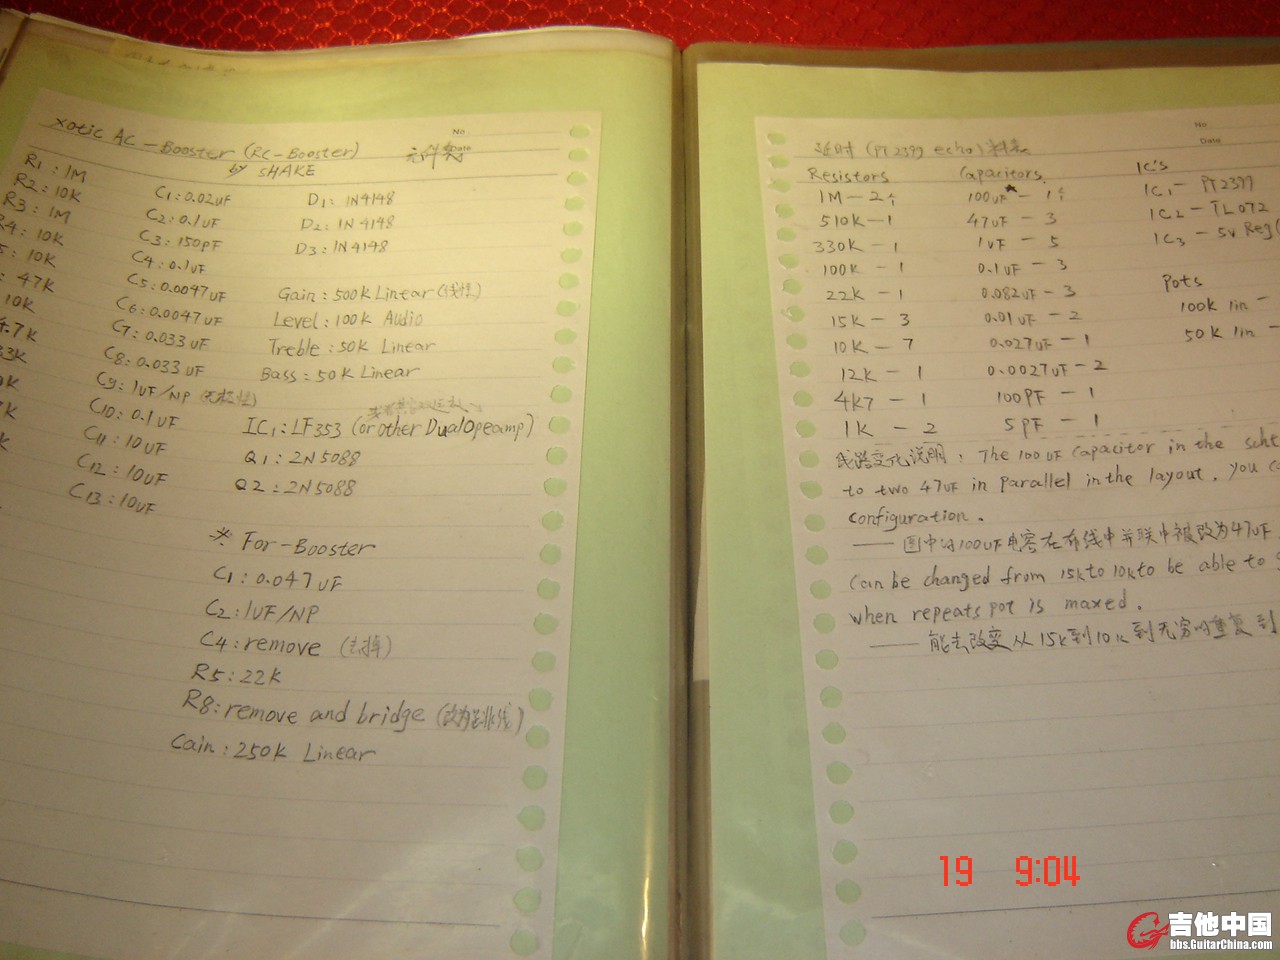 xotic AC-Booster (RC-Booster) 元件表
by SHAKE
No
Date
R1: 1M
R2: 10K
R3: 1M
R4: 10K
5: 10K
: 47K
10K
4.7K
33K
0K
K
K
C1: 0.02uF
C2: 0.1uF
C3: 150pF
C4: 0.1uF
C5: 0.0047uF
C6: 0.0047uF
C7: 0.033uF
C8: 0.033uF
C9: 1uF/NP (无极性)
C10: 0.1uF
C11: 10uF
C12: 10uF
C13: 10uF
D1: 1N4148
D2: 1N4148
D3: 1N4148
Gain: 500K Linear (线性)
Level: 100K Audio
Treble: 50K Linear
Bass: 50K Linear
IC1: LF353 (or other Dual Opeamp)
Q1: 2N5088
Q2: 2N5088
* For-Booster
C1: 0.047uF
C2: 1uF/NP
C4: remove (去掉)
R5: 22K
R8: remove and bridge (改为跳线)
Gain: 250K Linear
No
Date
延时 (PT2399 echo) 料表
Resistors
1M - 2个
510K - 1
330K - 1
100K - 1
22K - 1
15K - 3
10K - 7
12K - 1
4K7 - 1
1K - 2
Capacitors
100uF* - 1个
47uF - 3
1uF - 5
0.1uF - 3
0.082uF - 3
0.01uF - 2
0.027uF - 1
0.0027uF - 2
100PF - 1
5PF - 1
IC's
IC1 - PT2399
IC2 - TL072
IC3 - 5V Reg(
Pots
100K lin -
50K lin -
线路变化说明: The 100uF capacitor in the sche
to two 47uF in parallel in the layout, you c
configuration.
—— 图中的100uF电容在布线中并联中被改为47uF
can be changed from 15k to 10k to be able to
when repeats pot is maxed.
—— 能去改变从15K到10K到无穷的重复到
19 9:04
吉他中国
bbs.GuitarChina.com